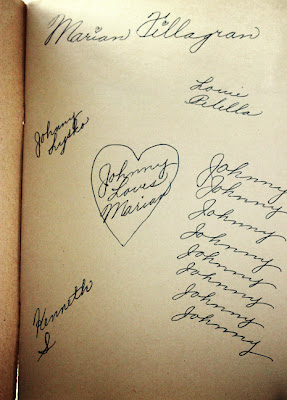 Marian Fillagran
Louie
Petella
Johnny
Lysko
Johnny
Loves
Marian
Johnny
Johnny
Johnny
Johnny
Johnny
Johnny
Johnny
Johnny
Kenneth
S